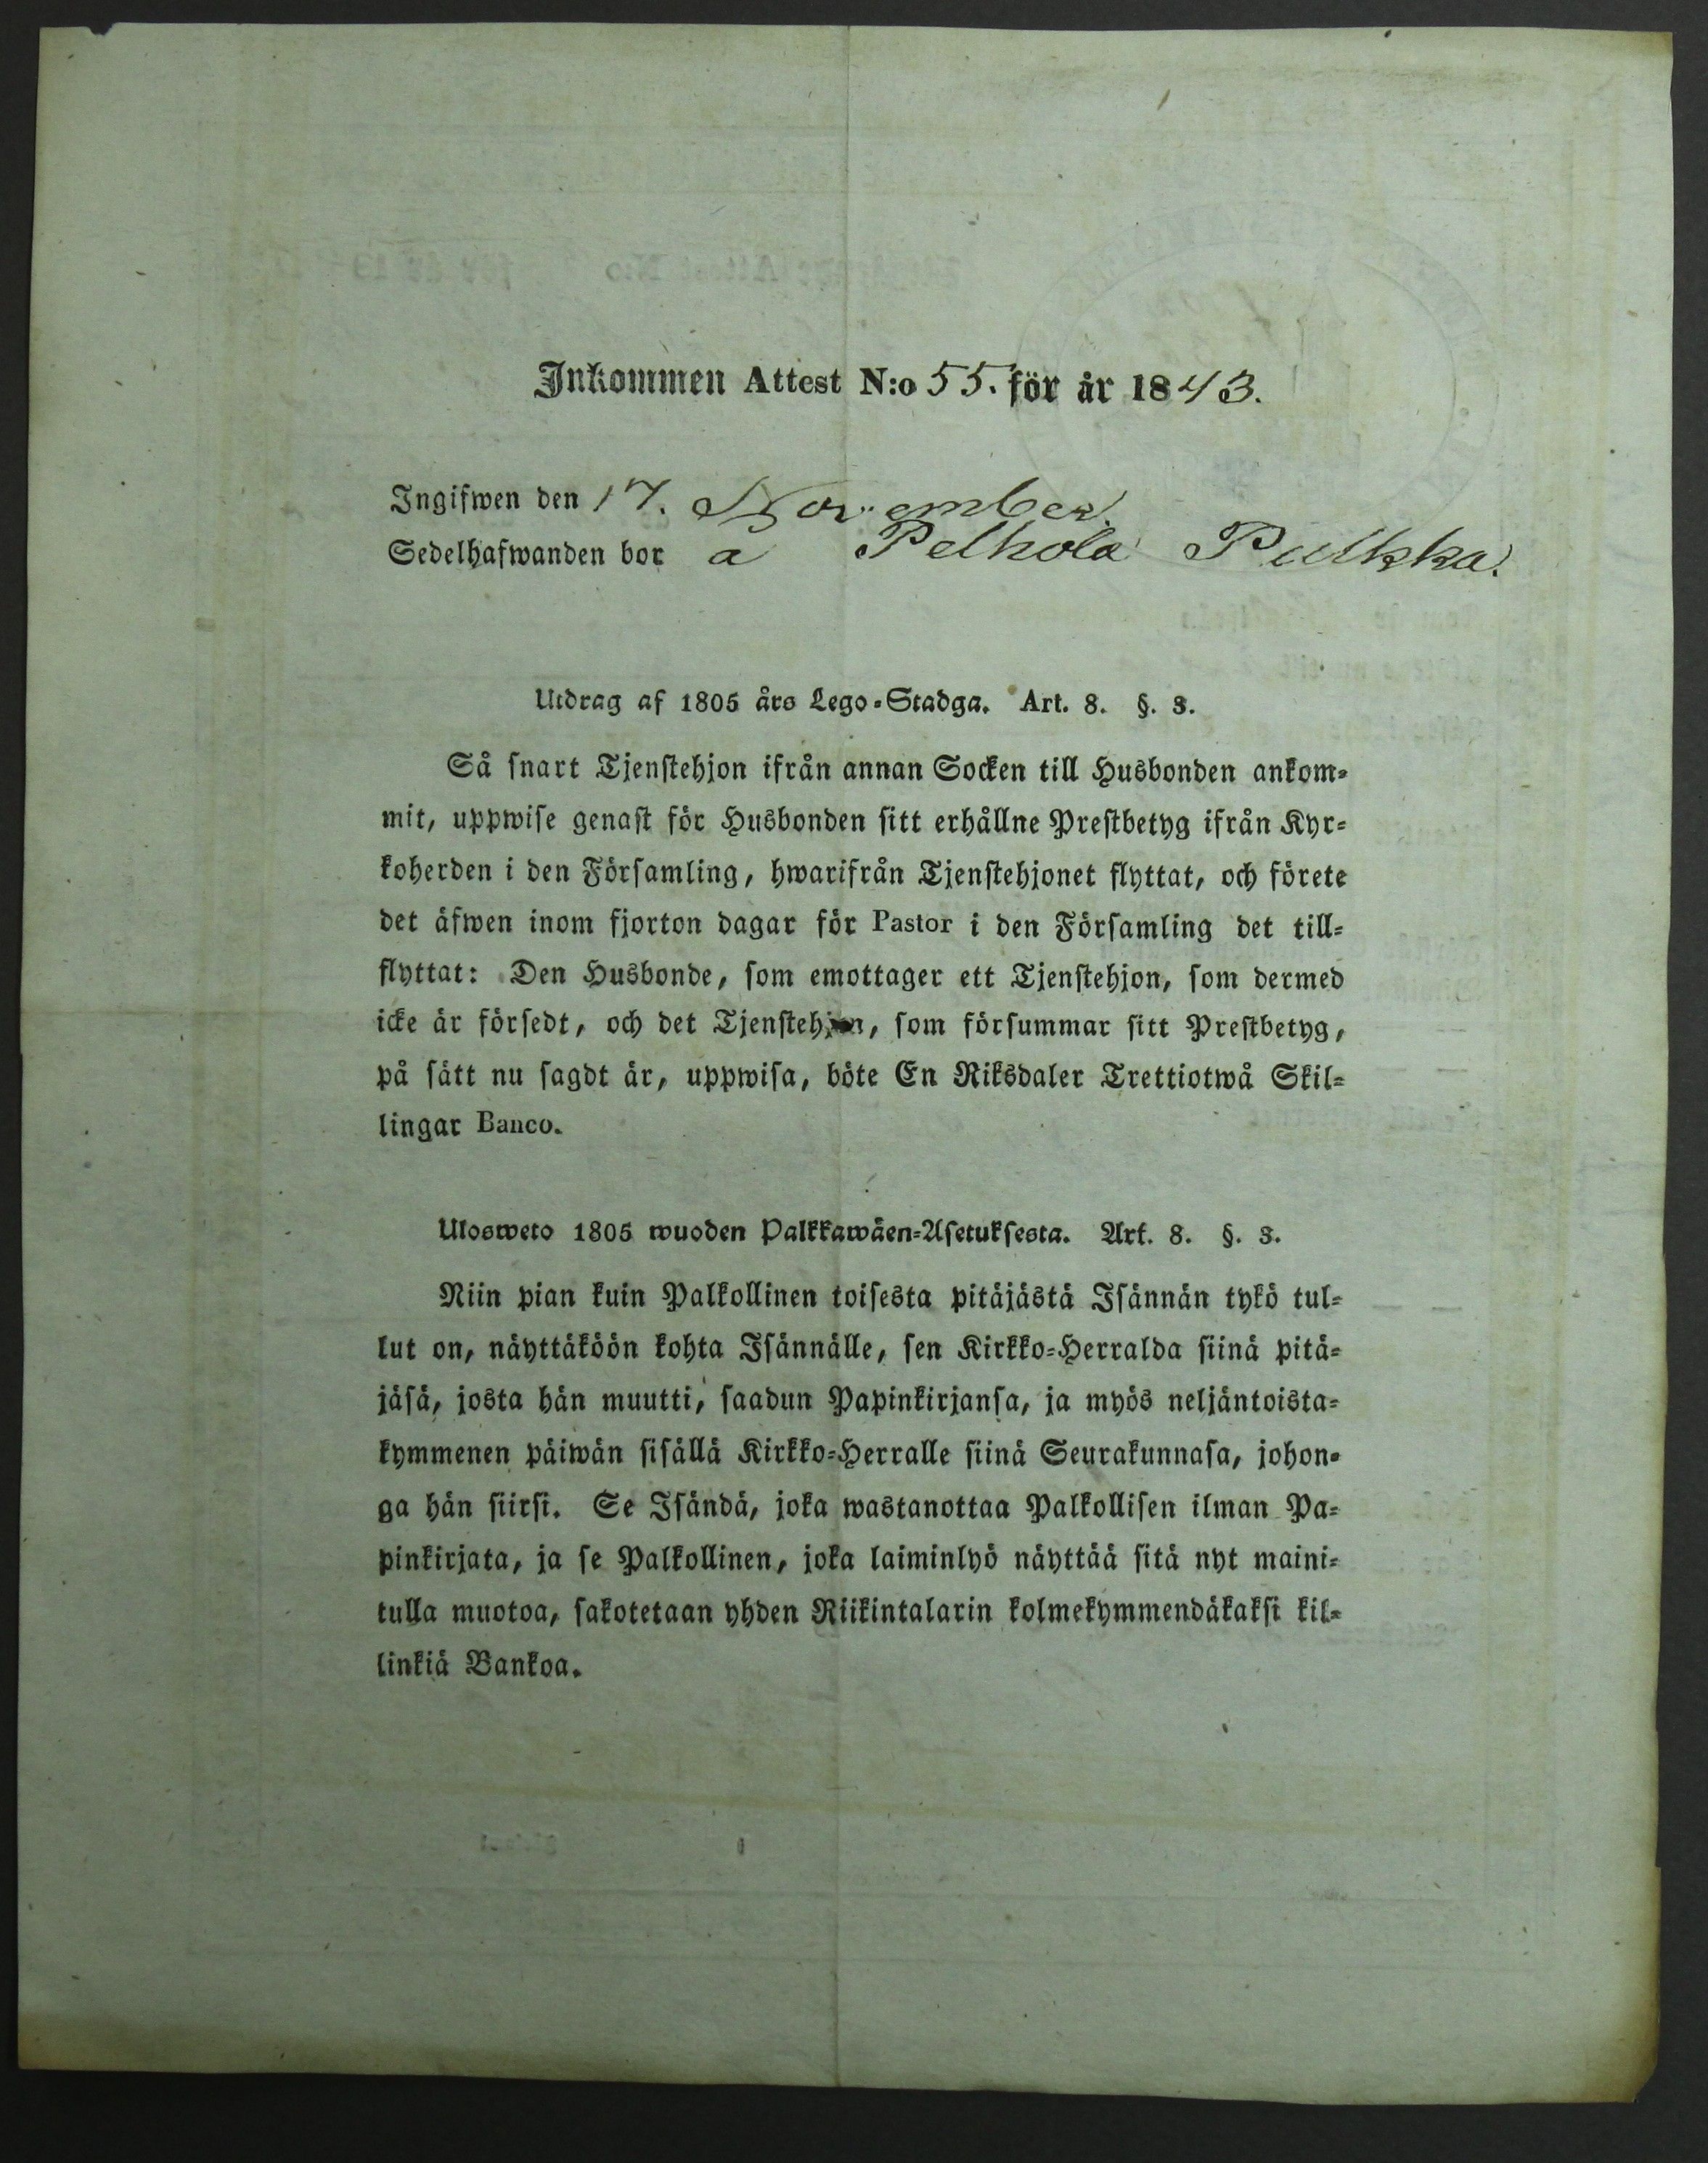 Inkommen Attest N:o 55. för år 1843.
Ingifwen den 17. November.
Sedelhafwanden bor å Pelhola Pulkka.
Utdrag af 1805 års Lego-Stadga. Art. 8. §. 3.
Så snart Tjenstehjon ifrån annan Socken till Husbonden ankom-
mit, uppwise genast för Husbonden sitt erhållne Prestbetyg ifrån Kyr-
koherden i den Församling, hwarifrån Tjenstehjonet flyttat, och förete
det äfwen inom fjorton dagar för Pastor i den Församling det till-
flyttat: Den Husbonde, som emottager ett Tjenstehjon, som dermed
icke är försedt, och det Tjenstehjon, som försummar sitt Prestbetyg,
på sätt nu sagdt är, uppwisa, böte En Riksdaler Trettiotwå Skil-
lingar Banco.
Ulosweto 1805 wuoden Palkkawäen-Asetuksesta. Art. 8. §. 3.
Niin pian kuin Palkollinen toisesta pitäjästä Isännän tykö tul-
lut on, näyttäköön kohta Isännälle, sen Kirkko-Herralda siinä pitä-
jäsä, josta hän muutti, saadun Papinkirjansa, ja myös neljäntoista-
kymmenen päiwän sisällä Kirkko-Herralle siinä Seurakunnasa, johon-
ga hän siirsi. Se Isändä, joka wastanottaa Palkollisen ilman Pa-
pinkirjata, ja se Palkollinen, joka laiminlyö näyttää sitä nyt maini-
tulla muotoa, sakotetaan yhden Riikintalarin kolmekymmendäkaksi kil-
linkiä Bankoa.